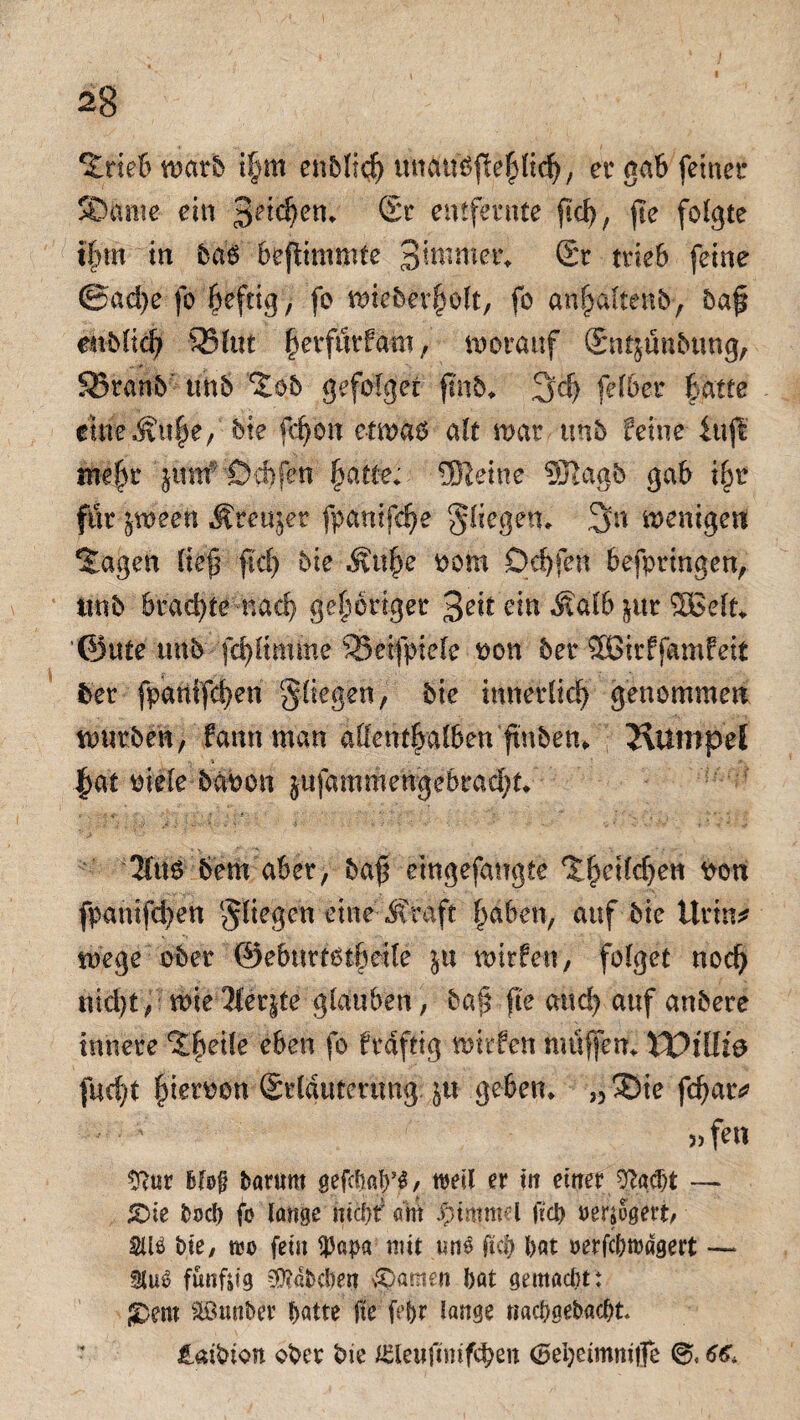 28
Trieb ward ihm endlich unausstehlich, er gab seiner
Dame ein Zeichen. Er entfernte sich, sie folgte
ihm in das bestimmte Zimmer. Er trieb seine
Sache so heftig, so wiederholt, so anhaltend, daß
endlich Blut herfürkam, worauf Entzündung,
Brand und Tod gefolget sind. Ich selber hatte
eine Kuhe, die schon etwas alt war und keine Lust
mehr zum Ochsen hatte. Meine Magd gab ihr
für zween Kreuzer spanische Fliegen. In wenigen
Tagen ließ sich die Kuhe vom Ochsen bespringen,
und brachte nach gehöriger Zeit ein Kalb zur Welt.
Gute und schlimme Beispiele von der Wirksamkeit
der spanischen Fliegen, die innerlich genommen
wurden, kann man allenthalben finden. Rumpel
hat viele davon zusammengebracht.
Aus dem aber, daß eingesaugte Theilchen von
spanischen Fliegen eine Kraft haben, auf die Urin-
wege oder Geburtstheile zu wirken, folget noch
nicht, wie Aerzte glauben, daß sie auch auf andere
innere Theile eben so kräftig wirken müssen. Willis
sucht hiervon Erläuterung zu geben. „Die schar-
„fen
Nur bloß darum geschah's, weil er in einer Nacht —
Die doch so lange nicht am Himmel sich verzögert,
Als die, wo sein Papa mit uns sich hat verschwägert —
Aus funfzig Mädchen Damen hat gemacht:
Dem Wunder hatte sie sehr lange nachgedacht.
Laidion oder die Eleusinischen Geheimnisse S. 66.